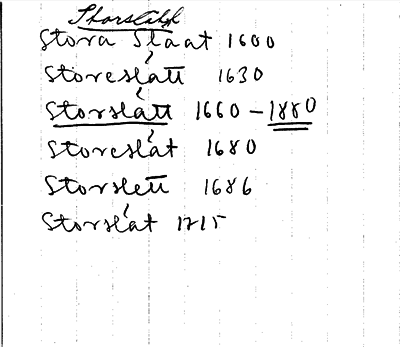 Stora Slaat 1600
Storeslått 1630
Storslått 1660 - 1880
Storeslåt 1680
Storslett 1686
Storslåt 1715